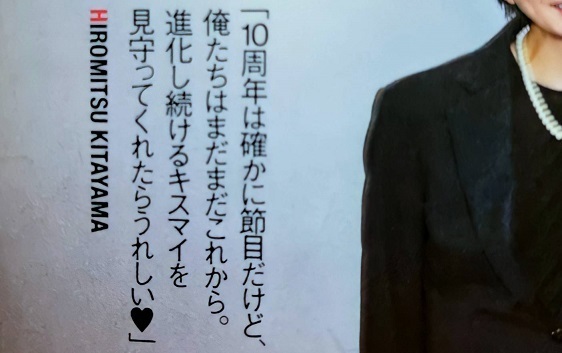 「10周年は確かに節目だけど、
俺たちはまだまだこれから。
進化し続けるキスマイを
見守ってくれたらうれしい♥」
HIROMITSU KITAYAMA